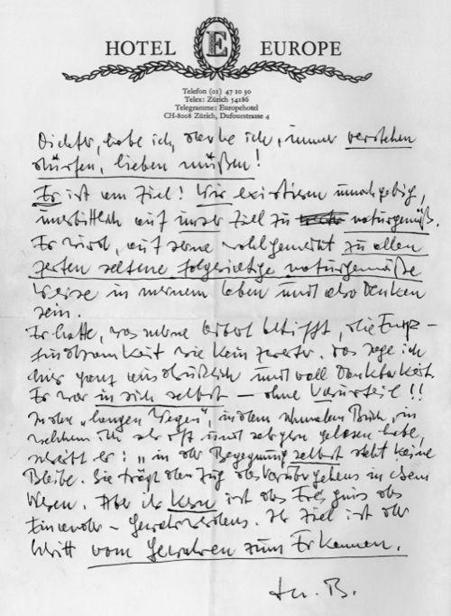 HOTEL E EUROPE
Telefon (01) 47 10 30
Telex: Zürich 54186
Telegramme: Europehotel
CH-8008 Zürich, Dufourstrasse 4
Dichter, habe ich, denke ich, immer verstehen
dürfen, lieben müßen!
Er ist am Ziel! Wir existieren unnachgiebig,
unerbittlich auf unser Ziel zu naturgemäß.
Er wird, auf seine wohlgemerkt zu allen
Zeiten seltene folgerichtige naturgemäße
Weise in meinem Leben und also Denken
sein.
Er hatte, was meine Arbeit betrifft, die Emp-
findsamkeit wie kein zweiter. Das sage ich
hier ganz ausdrücklich und voll Dankbarkeit.
Er war in sich selbst – ohne Vorurteil!!
In den "langen Wegen", in dem schmalen Buch, in
welchem ich sehr oft und sehr gern gelesen habe,
schreibt er: "in der Begegnung selbst steht keine
Bleibe. Sie trägt den Zug des Vorübergehens in ihrem
Wesen. Aber ihr Kern ist das Ereignis des
Einander-Gewahrwerdens. Ihr Ziel ist der
Schritt vom Gewahren zum Erkennen.
B.